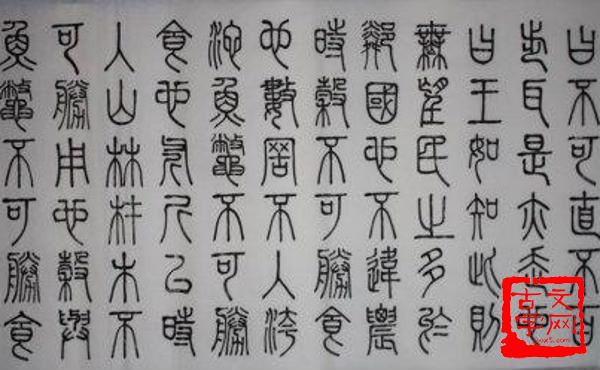 曰不可直不百
步耳是亦走也
曰王如知此則
無望民之多於
鄰國也不違農
時穀不可勝食
也數罟不入洿
池魚鼈不可勝
食也斧斤以時
入山林材木不
可勝用也穀與
魚鼈不可勝食